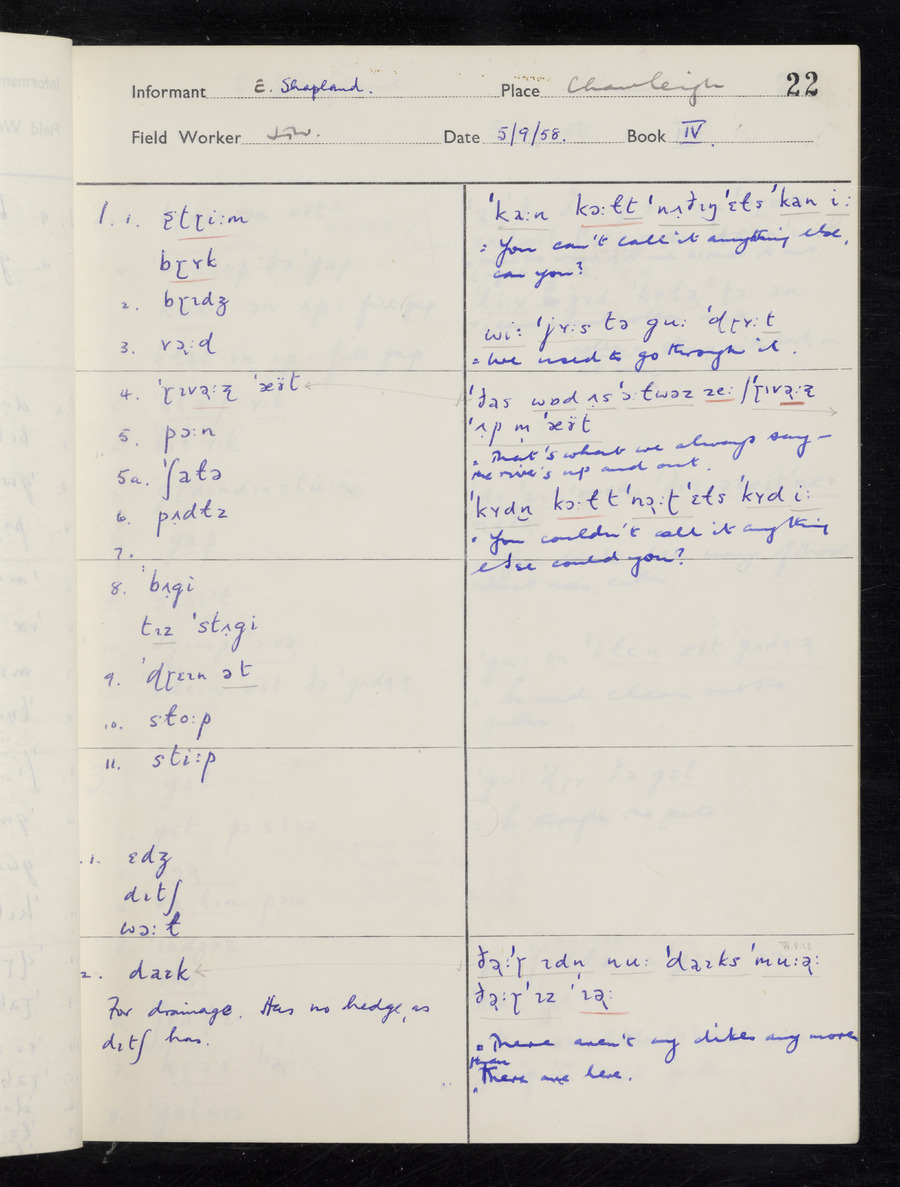 Informant E. Shapland. Place Chawleigh 22
Field Worker Date 5/9/58. Book IV.
1. 1. ɛtɽi:m
bɽɤk
2. bɽɪdʒ
3. vəɽ:d
4. 'ɽɪvəɽ:z̜ 'æÿt
5. pɔ:n
5a. 'ʃatə
6. pʌdɫz
7.
8. 'bʌgi
tɪz 'stʌgi
9. 'dɽɛɪn ət
10. sto:p
11. sti:p
.1. ɛdʒ
dɪtʃ
wɔ:t
2. daɪk
For drainage. Has no hedge, as
dɪtʃ has.
'ka:n kɔ:ɫt 'nʌðɪŋ 'ɛɫs 'kan i:
= You can't call it anything else,
can you?
wi: 'jʏ:s tə gu: 'dɽʏ: t
= We used to go through it.
'ðas wɒd ʌs 'ɔ:ɫwəz ze: / 'ɽɪvəɽ:z
'ʌp m 'æÿt
= That's what we always say –
the river's up and out.
'kʏdn kɔ:ɫ t 'nɔ:t 'ɛɫs 'kʏd i:
= You couldn't call it anything
else could you?
ðə:'ɽ ɪdn nu: 'daɪks 'mu:ə:
ðə:ɽ 'ɪz 'ɪə:
= There aren't any dikes any more
than
There are here.